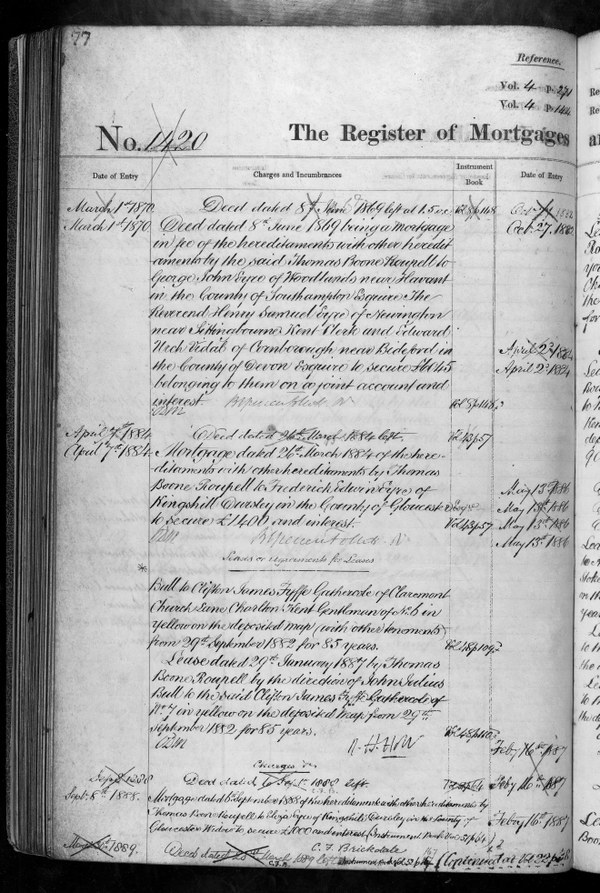 77
Reference.
Vol. 4 P. 271
Vol. 4 P. 144
No. 1420 The Register of Mortgages
Date of Entry Charges and Incumbrances Instrument Book Date of Entry
March 1st 1870 Deed dated 8th June 1869 left at 1.5
March 1st 1870 Deed dated 8th June 1869 being a mortgage Oct. 27. 1882
in fee of the hereditaments with other heredit
aments by the said Thomas Boone Roupell to
George John Eyre of Woodlands near Havant
in the County of Southampton Esquire The
Reverend Henry Samuel Eyre of Newington
near Sittingbourne Kent Clerk and Edward
Vidal of Cornborough near Bideford in April 23 1884
the County of Devon Esquire to secure April 23 1884
belonging to them on a joint account and
interest.
April 7th 1884 Deed dated 26th March 1884 left. Vol 43 p 57
April 7th 1884 Mortgage dated 26th March 1884 of the here-
ditaments with other hereditaments by Thomas
Boone Roupell to Frederick Edwin Eyre of May 13th 1886
Kingshill Dursley in the County of Gloucester May 13th 1886
to secure £1400 and interest. Vol 43 p 57 May 13th 1886
May 13th 1886
Leases or agreements for Leases
Bull to Clifton James Fyffe Gathercole of Claremont
Church Lane Charlton Kent Gentleman of No. 6 in
yellow on the deposited map (with other tenements)
from 29th September 1882 for 85 years.
Lease dated 29th January 1887 by Thomas
Boone Roupell by the direction of John Julius
Bull to the said Clifton James Fyffe Gathercole of
No. 7 in yellow on the deposited map from 29th
September 1882 for 85 years.
Feby 16th 1887
Charges on
Deed dated 1st Sept. 1888 left. Feby 16th 1887
Sept. 8th 1888. Mortgage dated 1st September 1888 of the hereditaments with other hereditaments by
Thomas Boone Roupell to Eliza Eyre of Kingshill Dursley in the County of Feby 16th 1887
Gloucester Widow to secure £1000 and interest (Instrument Book Vol 51 p 64)
C. F. Brickdale
1889. Deed dated March 1889 left (Continued at Vol. 22